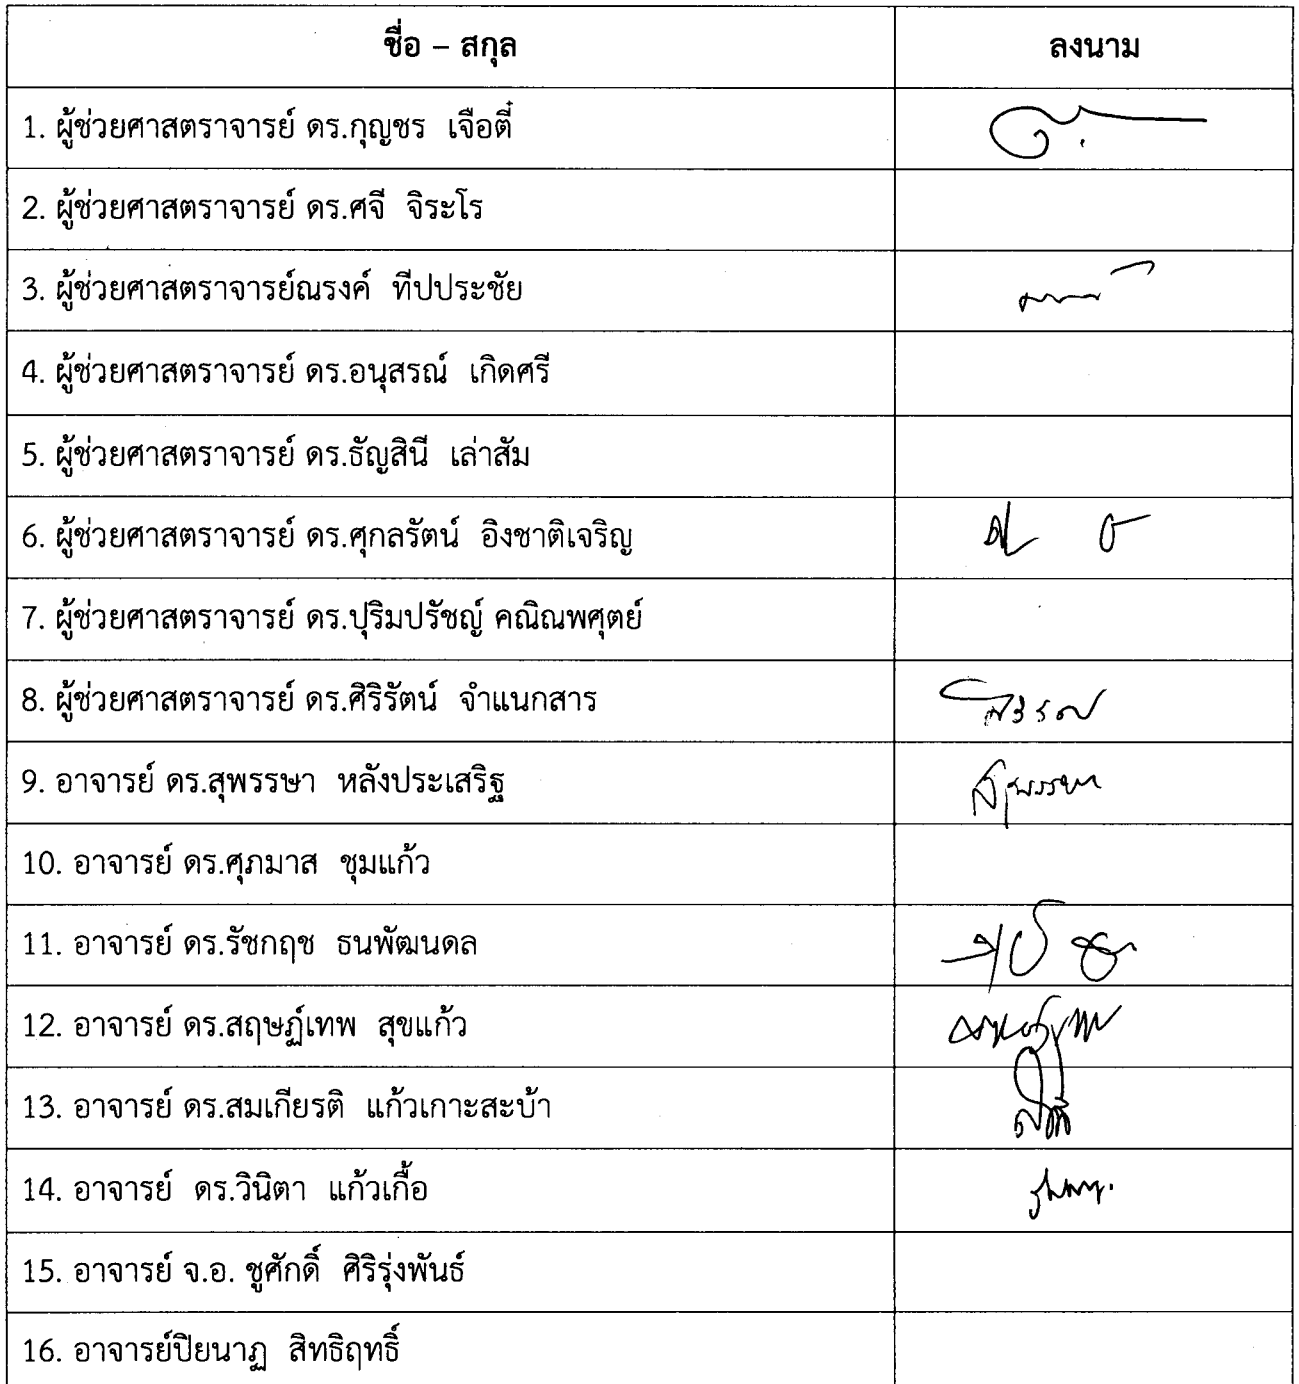 ชื่อ – สกุล ลงนาม
1. ผู้ช่วยศาสตราจารย์ ดร.กุญชร เจือตี๋
2. ผู้ช่วยศาสตราจารย์ ดร.ศจี จิระโร
3. ผู้ช่วยศาสตราจารย์ณรงค์ ทีปประชัย
4. ผู้ช่วยศาสตราจารย์ ดร.อนุสรณ์ เกิดศรี
5. ผู้ช่วยศาสตราจารย์ ดร.ธัญสินี เล่าสัม
6. ผู้ช่วยศาสตราจารย์ ดร.ศุกลรัตน์ อิงชาติเจริญ
7. ผู้ช่วยศาสตราจารย์ ดร.ปุริมปรัชญ์ คณิณพศุตย์
8. ผู้ช่วยศาสตราจารย์ ดร.ศิริรัตน์ จำแนกสาร
9. อาจารย์ ดร.สุพรรษา หลังประเสริฐ สุพรรษา
10. อาจารย์ ดร.ศุภมาส ชุมแก้ว
11. อาจารย์ ดร.รัชกฤช ธนพัฒนดล
12. อาจารย์ ดร.สฤษฏ์เทพ สุขแก้ว
13. อาจารย์ ดร.สมเกียรติ แก้วเกาะสะบ้า
14. อาจารย์ ดร.วินิตา แก้วเกื้อ
15. อาจารย์ จ.อ. ชูศักดิ์ ศิริรุ่งพันธ์
16. อาจารย์ปิยนาฏ สิทธิฤทธิ์